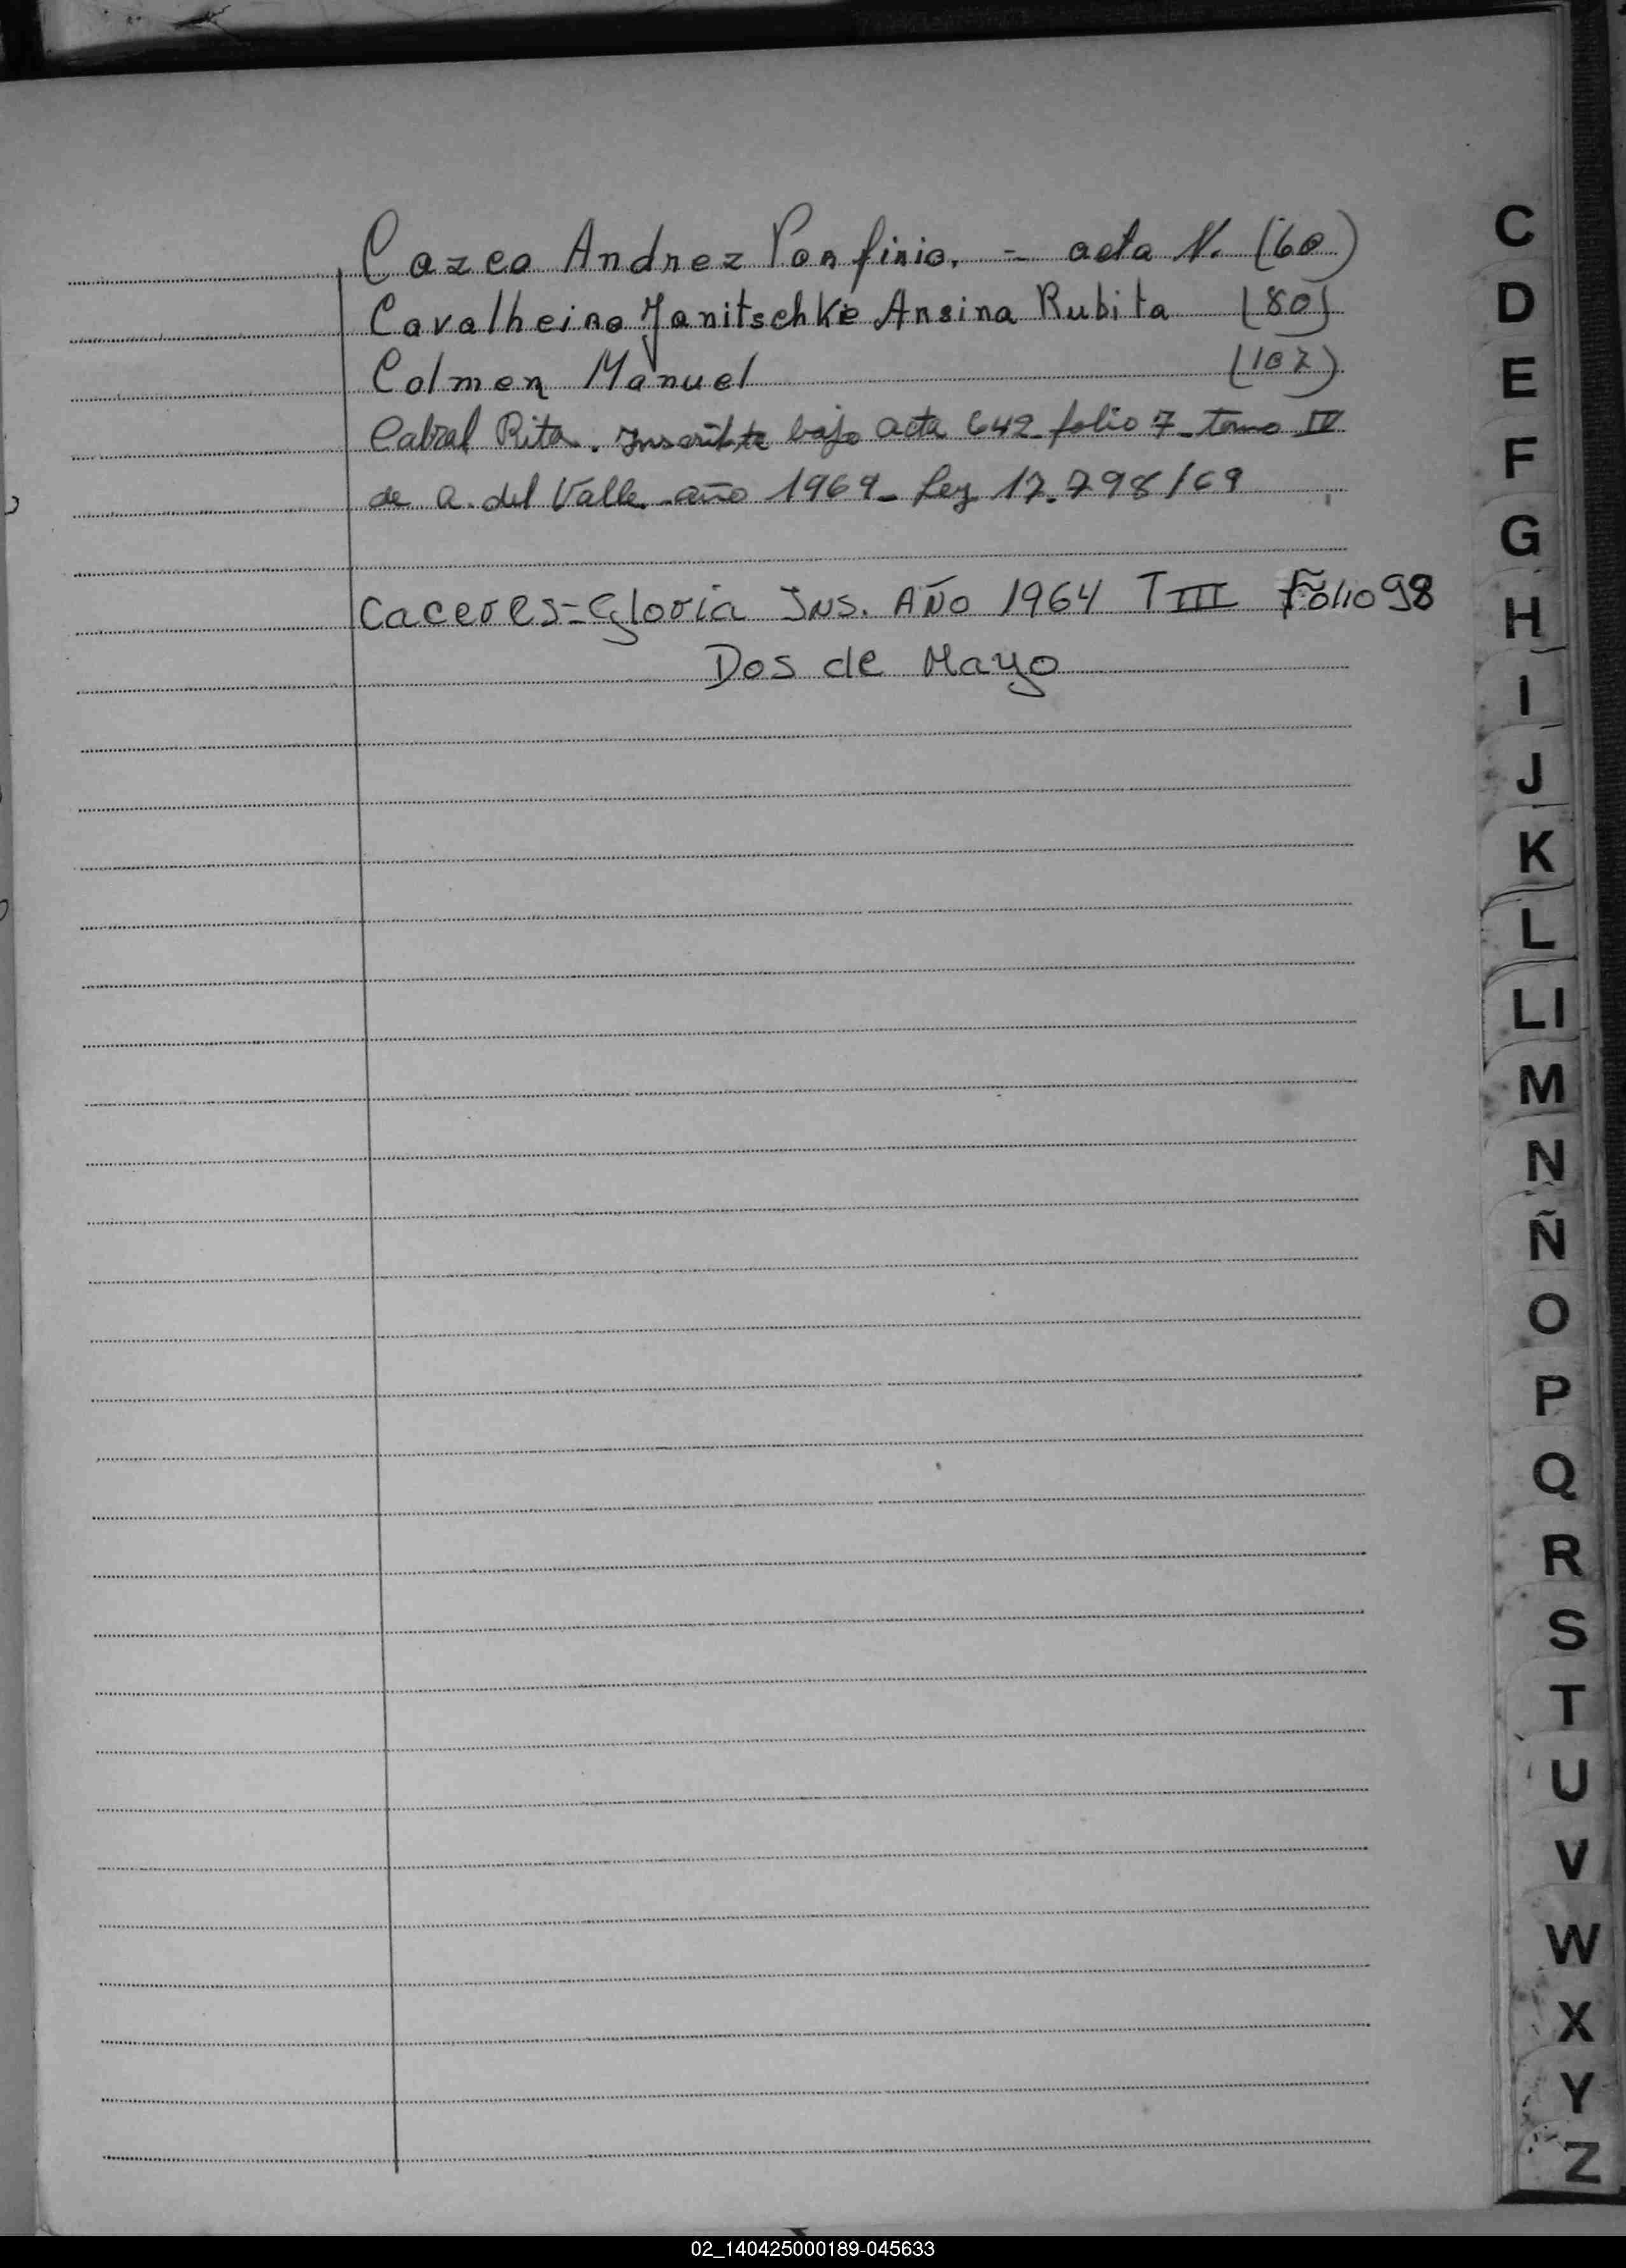 Cazco Andrez Porfirio. = acta N. (60)
Cavalheiro Janitschke Arsina Rubita (80)
Colmer Manuel (107)
Cabral Rita. Inscripta bajo acta 642 folio 7 - tomo IV
de a. del Valle - año 1969 - Ley 17.798/69
Caceres = Gloria INS. AÑO 1964 T III Folio 98
Dos de Mayo
C
D
E
F
G
H
I
J
K
L
Ll
M
N
Ñ
O
P
Q
R
S
T
U
V
W
X
Y
Z
02_140425000189-045633